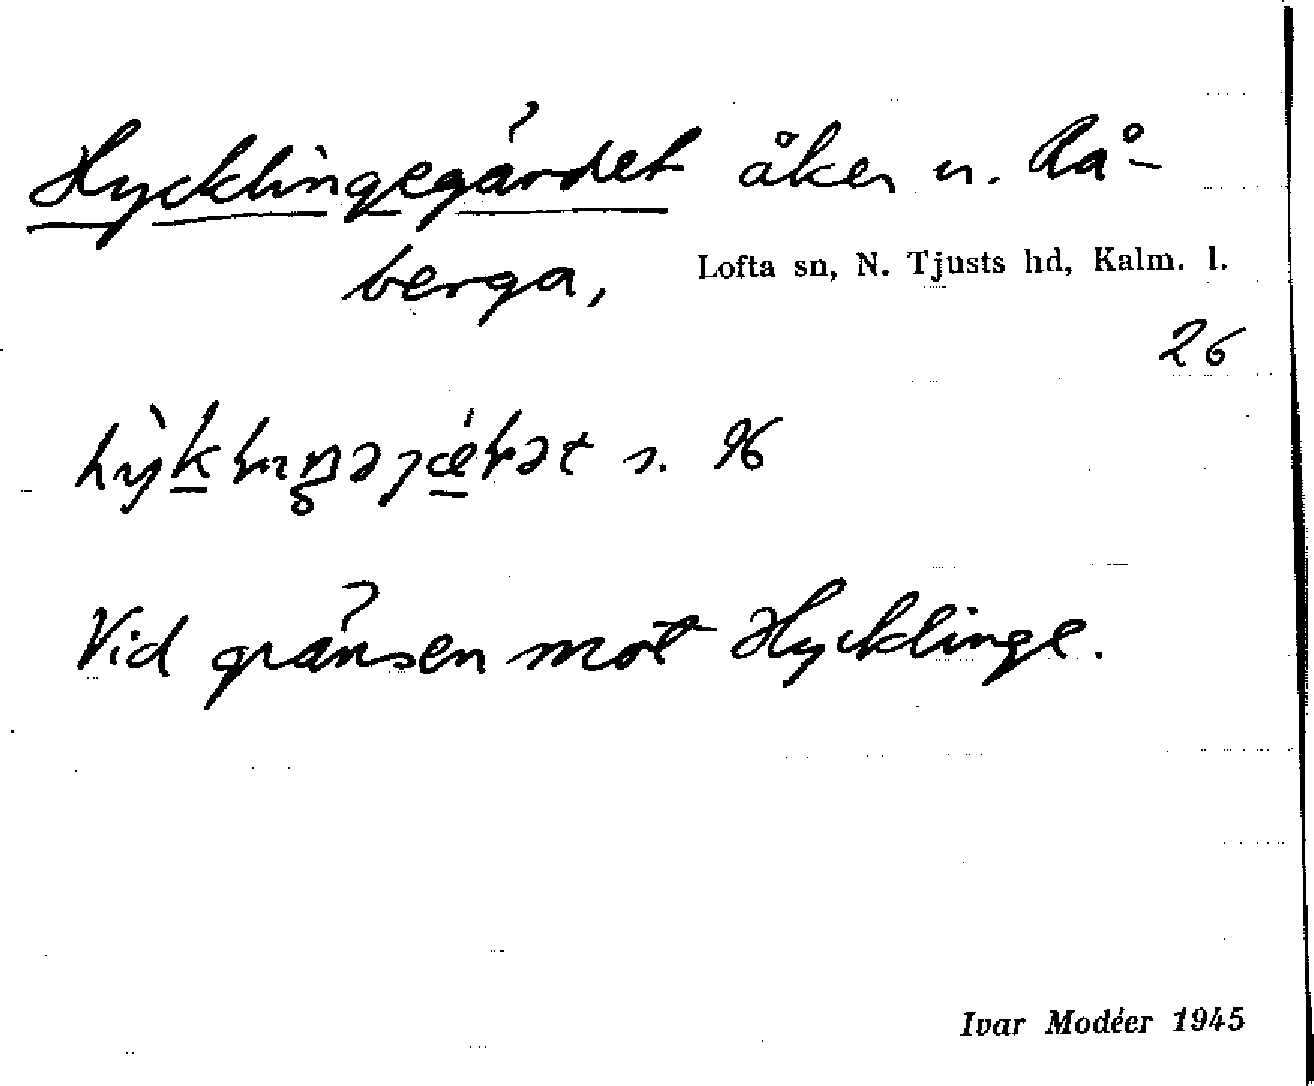 Hycklingegärdet åker u. Rå-
berga, Lofta sn, N. Tjusts hd, Kalm. l.
26
s. 96
Vid gränsen mot Hycklinge.
Ivar Modéer 1945